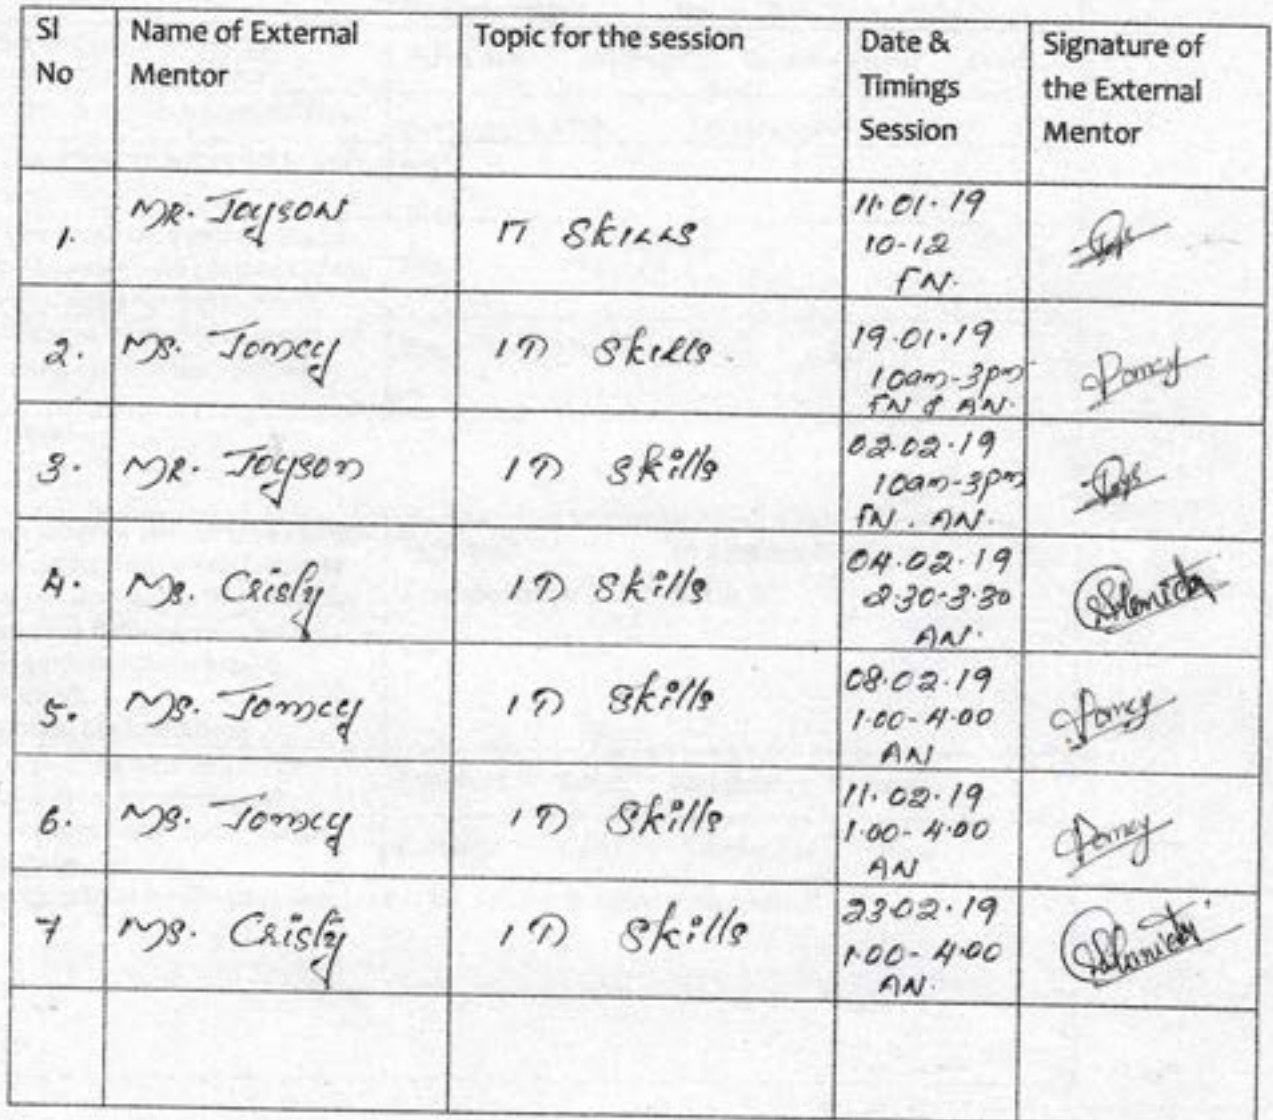 Sl No | Name of External Mentor | Topic for the session | Date & Timings Session | Signature of the External Mentor
1. | MR. Joyson | IT SKILLS | 11.01.19 10-12 FN.
2. | Ms. Jomcy | IT Skills. | 19.01.19 10am-3pm FN & AN.
3. | MR. Joyson | IT Skills | 02.02.19 10am-3pm FN. AN.
4. | Ms. Crisly | IT Skills | 04.02.19 2.30-3.30 AN.
5. | Ms. Jomcy | IT Skills | 08.02.19 1.00-4.00 AN
6. | Ms. Jomcy | IT Skills | 11.02.19 1.00-4.00 AN
7 | Ms. Crisly | IT Skills | 23.02.19 1.00-4.00 AN.